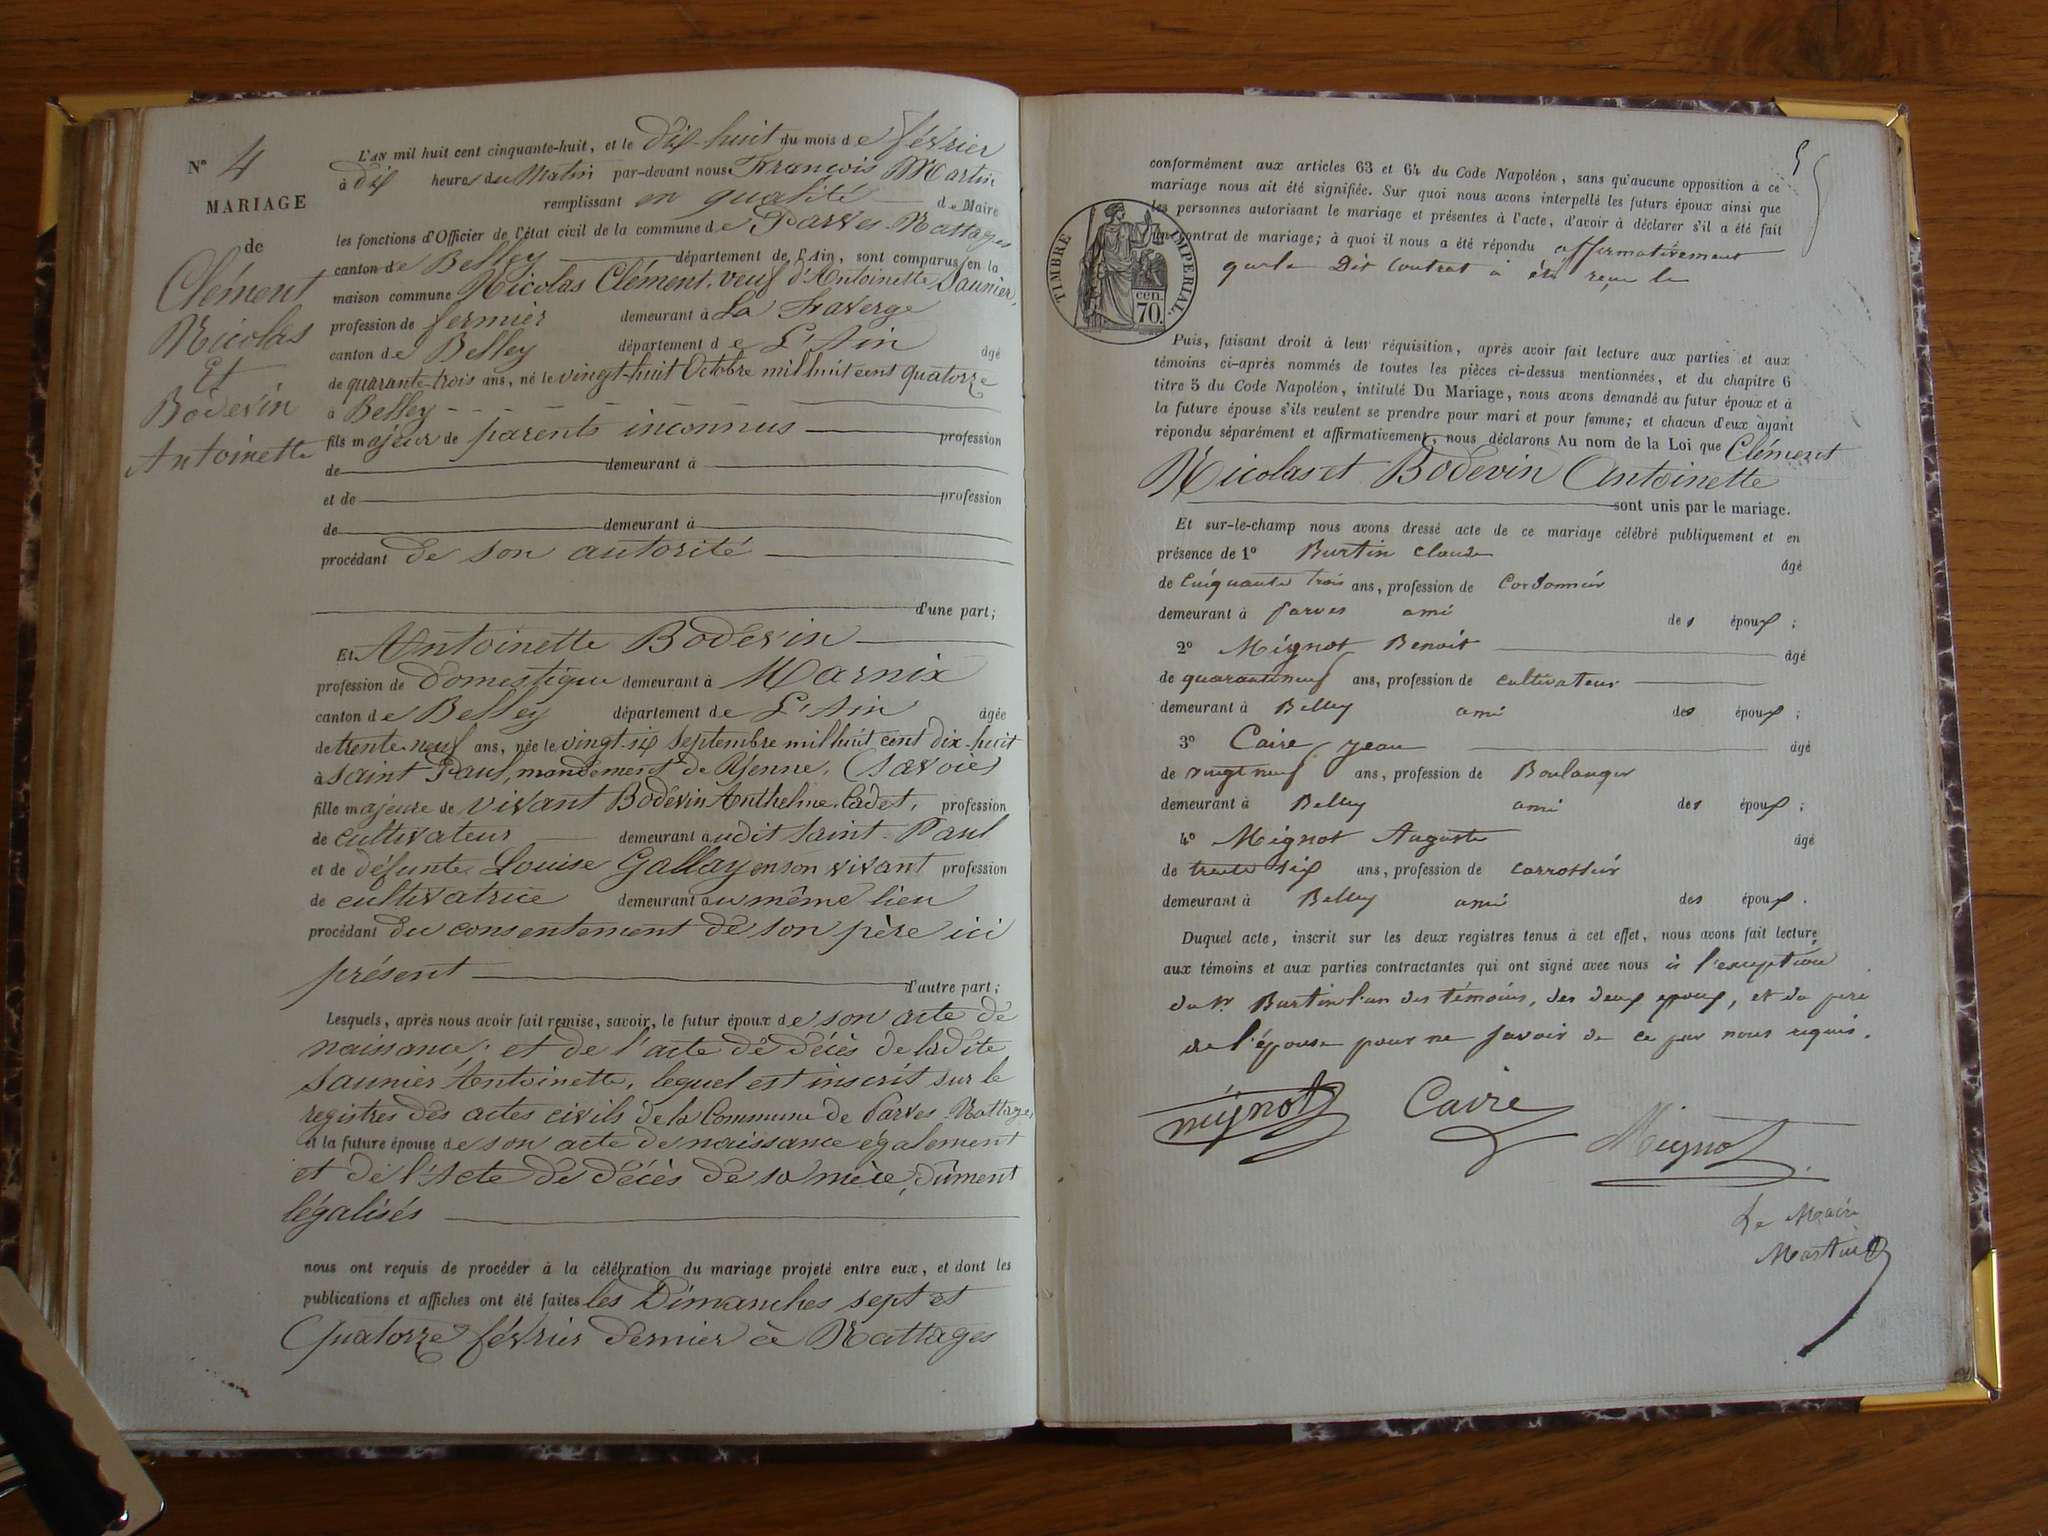 N° 4
MARIAGE
de
Clément
Nicolas
Et
Bodevin
Antoinette
L'AN mil huit cent cinquante-huit, et le dix-huit du mois de février
à dix heures du Matin par-devant nous François Martin
remplissant en qualité de Maire
les fonctions d'Officier de l'état civil de la commune de Parves-Nattages
canton de Belley département de l'Ain, sont comparus en la
maison commune Nicolas Clément, veuf d'Antoinette Saunier,
profession de fermier demeurant à La Traverge
canton de Belley département de L'Ain âgé
de quarante-trois ans, né le vingt-huit Octobre mil huit cent quatorze
à Belley
fils majeur de parents inconnus profession
de demeurant à
et de profession
de demeurant à
procédant de son autorité
d'une part;
Et Antoinette Bodevin
profession de domestique demeurant à Marnix
canton de Belley département de L'Ain âgée
de trente-neuf ans, née le vingt-six septembre mil huit cent dix-huit
à Saint Paul, mandement de Yenne, (Savoie)
fille majeure de vivant Bodevin Anthelme Cadet, profession
de cultivateur demeurant audit Saint-Paul
et de défunte Louise Gallay en son vivant profession
de cultivatrice demeurant au même lieu
procédant du consentement de son père ici
présent d'autre part;
Lesquels, après nous avoir fait remise, savoir, le futur époux de son acte de
naissance; et de l'acte de décès de ladite
Saunier Antoinette, lequel est inscrit sur le
registres des actes civils de la Commune de Parves-Nattages
et la future épouse de son acte de naissance également
et de l'Acte de décès de sa mère, dûment
légalisés
nous ont requis de procéder à la célébration du mariage projeté entre eux, et dont les
publications et affiches ont été faites les Dimanches sept et
Quatorze février dernier à Nattages
5
conformément aux articles 63 et 64 du Code Napoléon, sans qu'aucune opposition à ce
mariage nous ait été signifiée. Sur quoi nous avons interpellé les futurs époux ainsi que
les personnes autorisant le mariage et présentes à l'acte, d'avoir à déclarer s'il a été fait
un contrat de mariage; à quoi il nous a été répondu affirmativement
que le Dit Contrat a été reçu le
TIMBRE IMPERIAL.
CEN.
70.
Puis, faisant droit à leur réquisition, après avoir fait lecture aux parties et aux
témoins ci-après nommés de toutes les pièces ci-dessus mentionnées, et du chapitre 6
titre 5 du Code Napoléon, intitulé Du Mariage, nous avons demandé au futur époux et à
la future épouse s'ils veulent se prendre pour mari et pour femme; et chacun d'eux ayant
répondu séparément et affirmativement, nous déclarons Au nom de la Loi que Clément
Nicolas et Bodevin Antoinette
sont unis par le mariage.
Et sur-le-champ nous avons dressé acte de ce mariage célébré publiquement et en
présence de 1° Burtin Claude âgé
de Cinquante trois ans, profession de Cordonnier
demeurant à Parves ami des époux;
2° Mignot Benoit âgé
de quarante neuf ans, profession de cultivateur
demeurant à Belley ami des époux;
3° Caire Jean âgé
de vingt neuf ans, profession de Boulanger
demeurant à Belley ami des époux;
4° Mignot Auguste âgé
de trente six ans, profession de carrossier
demeurant à Belley ami des époux.
Duquel acte, inscrit sur les deux registres tenus à cet effet, nous avons fait lecture
aux témoins et aux parties contractantes qui ont signé avec nous à l'exception
du Sr. Burtin l'un des témoins, des deux époux, et du père
de l'épouse pour ne savoir de ce par nous requis.
Mignot Caire
Mignot
Le Maire
Martin